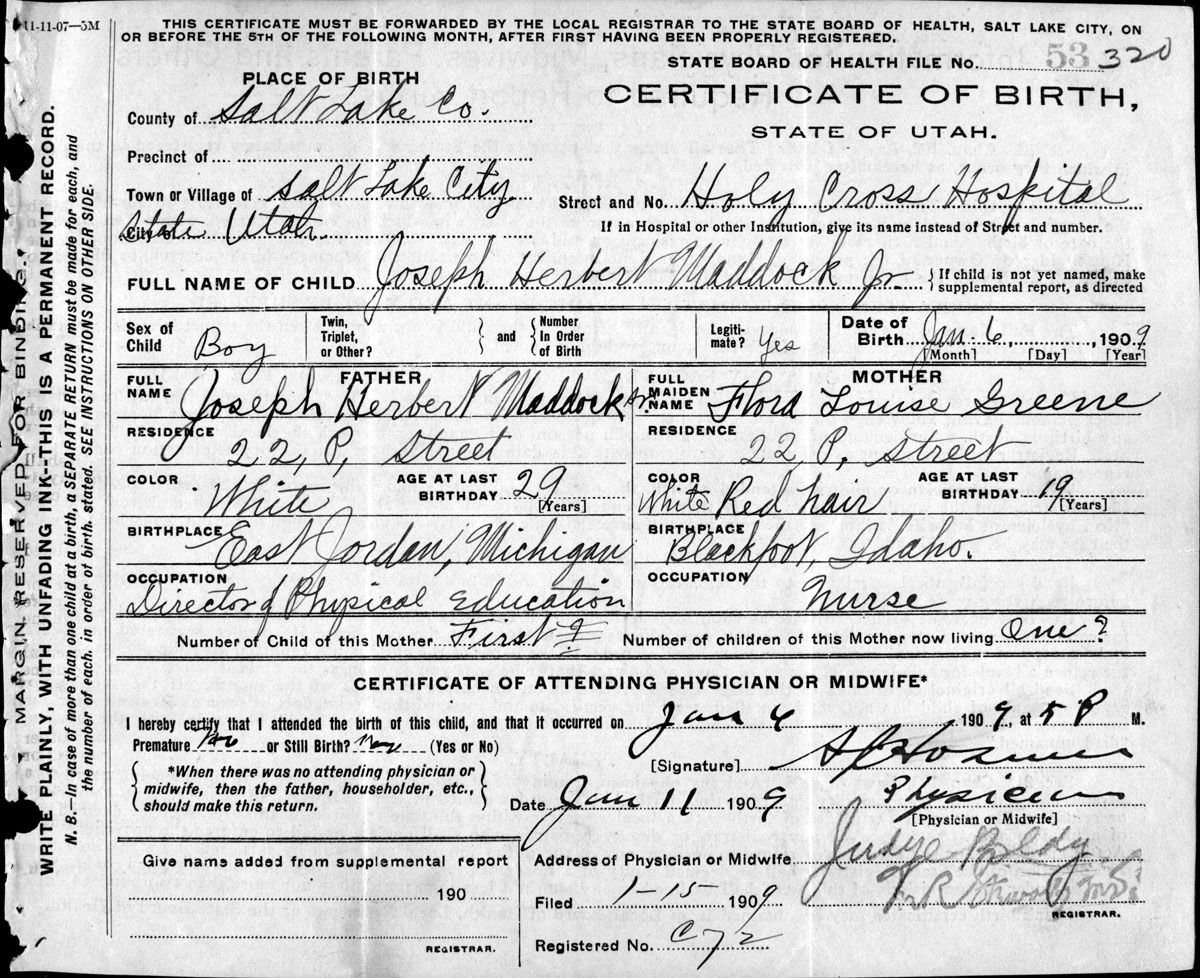 11-11-07—5M
THIS CERTIFICATE MUST BE FORWARDED BY THE LOCAL REGISTRAR TO THE STATE BOARD OF HEALTH, SALT LAKE CITY, ON
OR BEFORE THE 5TH OF THE FOLLOWING MONTH, AFTER FIRST HAVING BEEN PROPERLY REGISTERED.
STATE BOARD OF HEALTH FILE No. 53 320
PLACE OF BIRTH
CERTIFICATE OF BIRTH,
STATE OF UTAH.
County of Salt Lake Co.
Precinct of
Town or Village of Salt Lake City
Street and No. Holy Cross Hospital
City of State Utah
If in Hospital or other Institution, give its name instead of Street and number.
FULL NAME OF CHILD Joseph Herbert Maddock Jr. { If child is not yet named, make
supplemental report, as directed
Sex of Child Boy
Twin, Triplet, or Other? } and { Number In Order of Birth
Legitimate? Yes
Date of Birth Jan. 6, 1909
[Month] [Day] [Year]
FATHER
FULL NAME Joseph Herbert Maddock Sr.
RESIDENCE 22, P, Street
COLOR White
AGE AT LAST BIRTHDAY 29 [Years]
BIRTHPLACE East Jordan, Michigan
OCCUPATION Director of Physical Education
MOTHER
FULL MAIDEN NAME Flora Louise Greene
RESIDENCE 22 P. Street
COLOR White Red hair
AGE AT LAST BIRTHDAY 19 [Years]
BIRTHPLACE Blackfoot, Idaho.
OCCUPATION Nurse
Number of Child of this Mother First ? Number of children of this Mother now living One ?
CERTIFICATE OF ATTENDING PHYSICIAN OR MIDWIFE*
I hereby certify that I attended the birth of this child, and that it occurred on Jan 6 1909, at 5 P M.
Premature No or Still Birth? No (Yes or No)
[Signature]
{ *When there was no attending physician or
midwife, then the father, householder, etc.,
should make this return. }
Date Jan 11 1909
Physician
[Physician or Midwife]
Give name added from supplemental report
190
REGISTRAR.
Address of Physician or Midwife Judge Bldg
Filed 1-15- 1909
REGISTRAR.
Registered No. C72
MARGIN RESERVED FOR BINDING.
WRITE PLAINLY, WITH UNFADING INK--THIS IS A PERMANENT RECORD.
N. B.—In case of more than one child at a birth, a SEPARATE RETURN must be made for each, and
the number of each, in order of birth, stated. SEE INSTRUCTIONS ON OTHER SIDE.